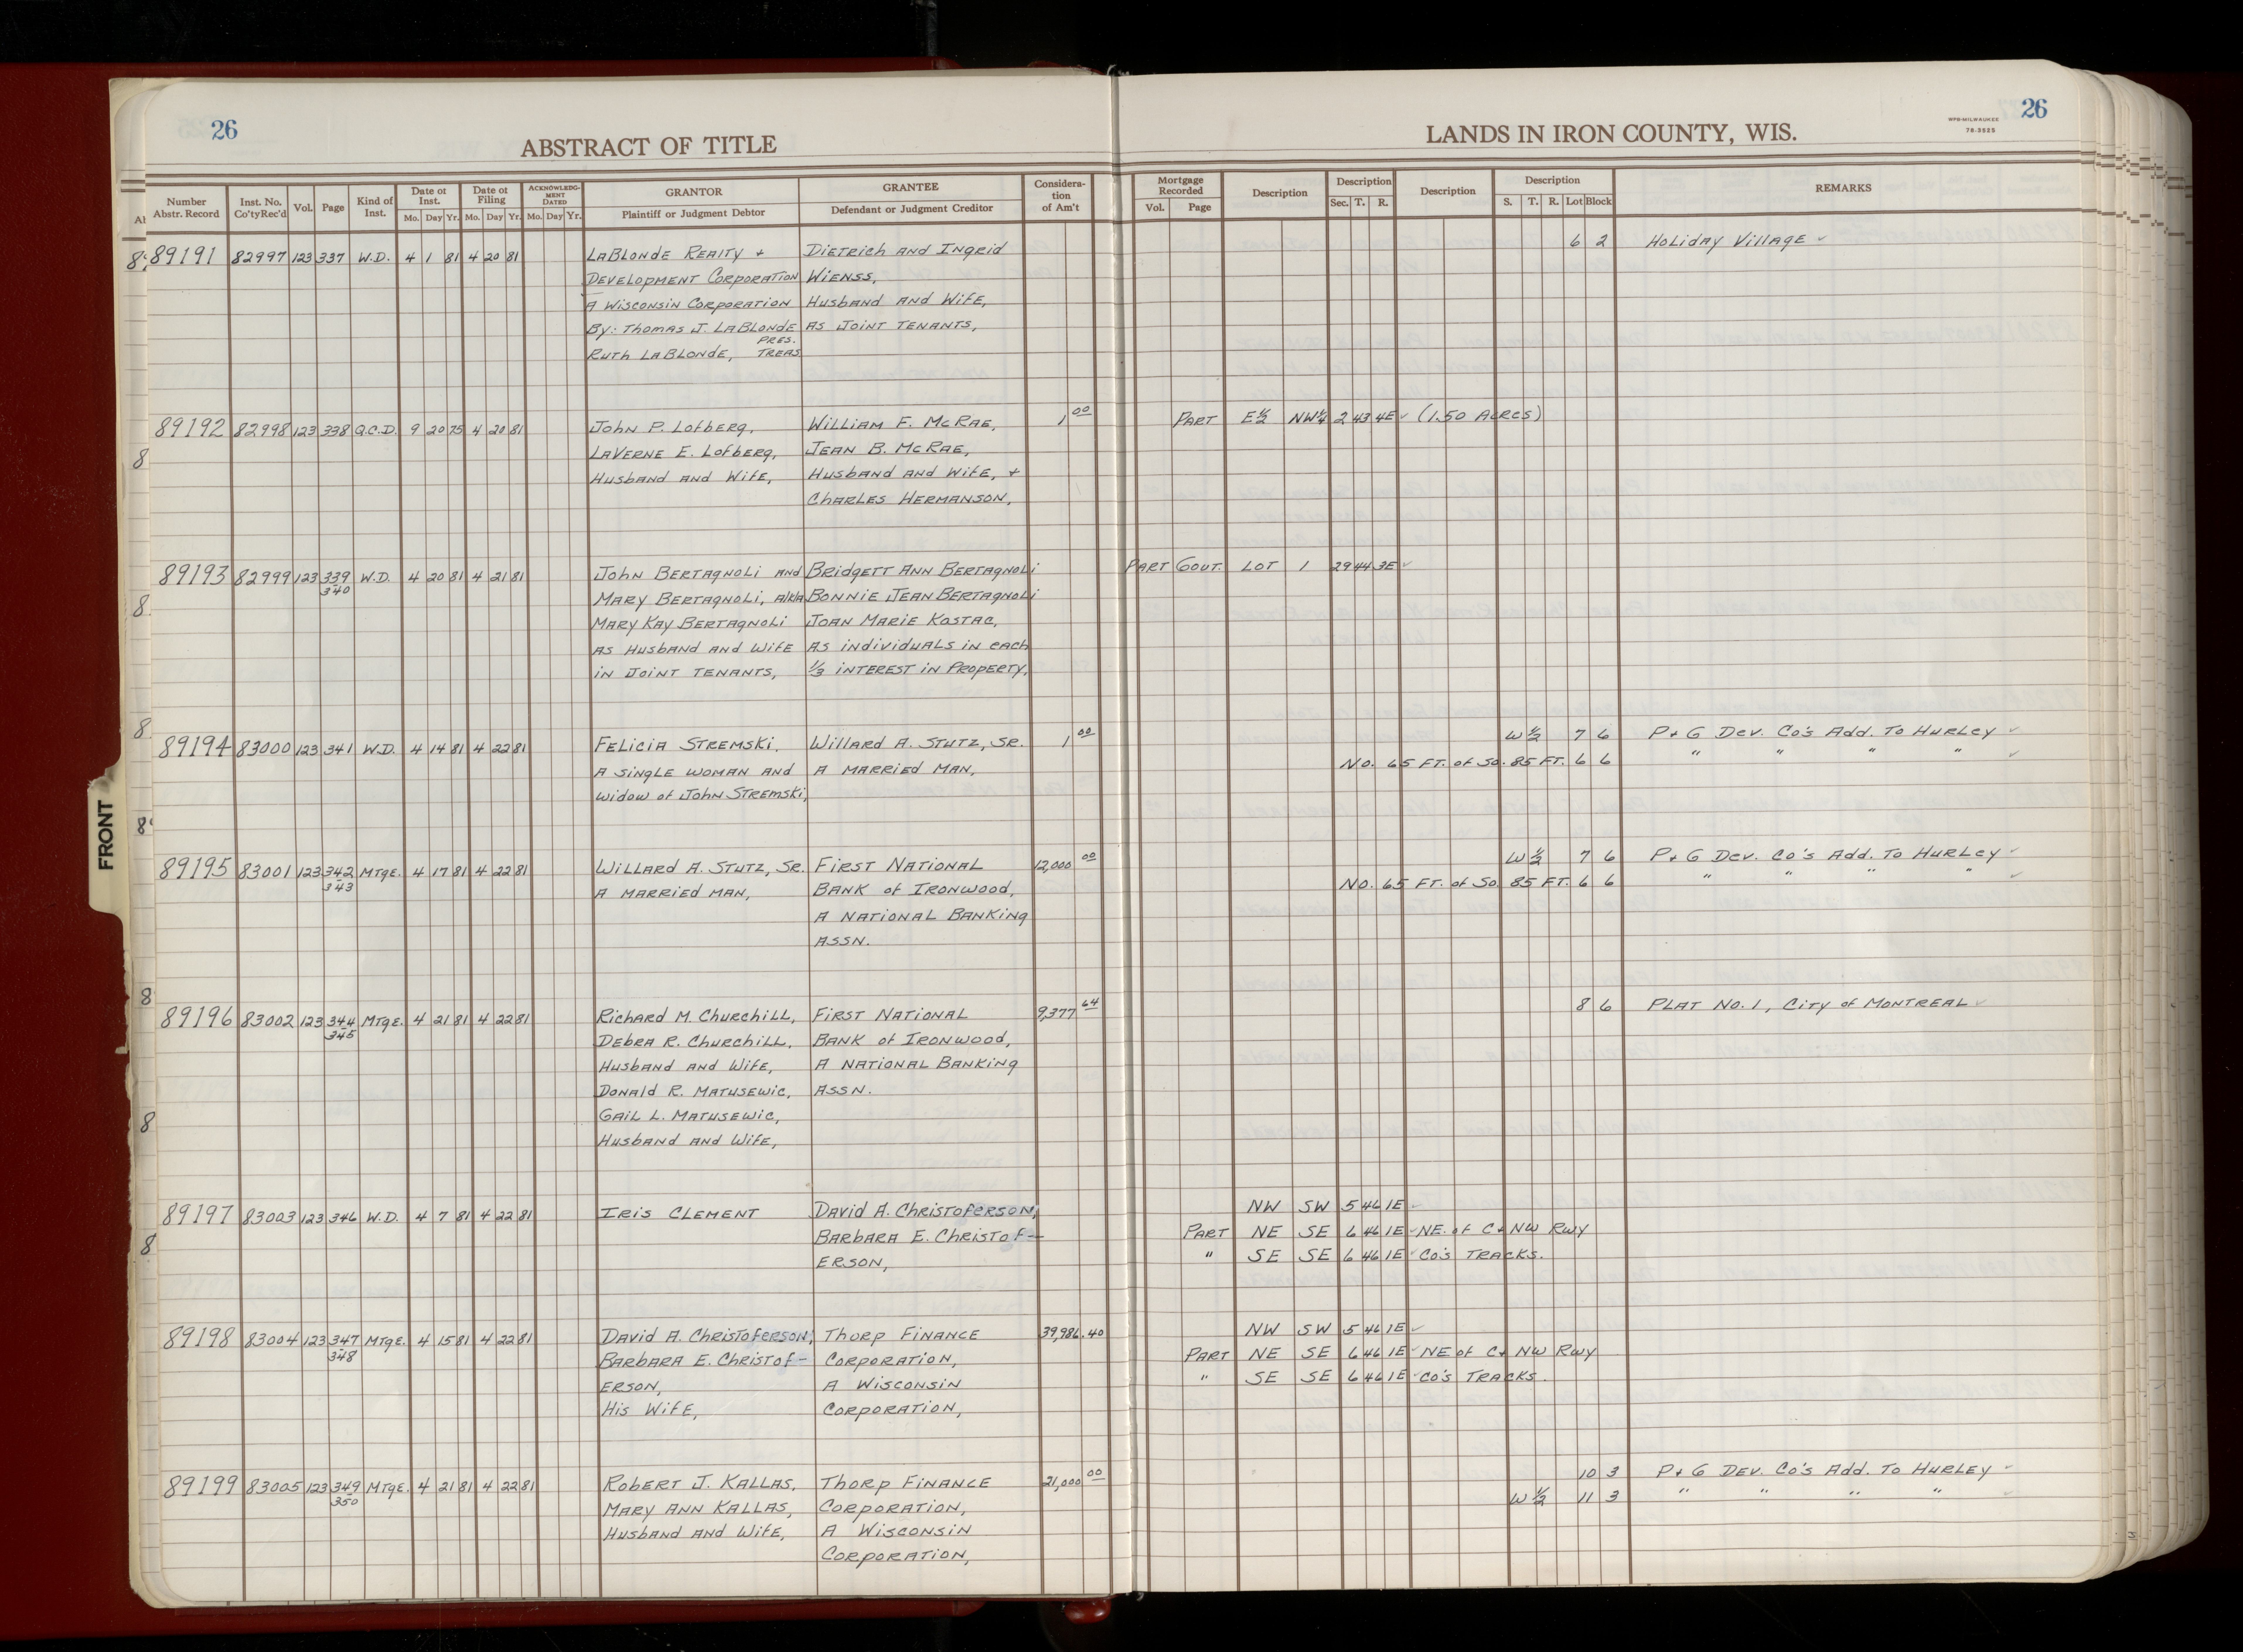 26
ABSTRACT OF TITLE
LANDS IN IRON COUNTY, WIS.
WPB-MILWAUKEE
78-3525
26
Number Abstr. Record
Inst. No. Co'ty Rec'd
Vol.
Page
Kind of Inst.
Date of Inst.
Mo. Day Yr.
Date of Filing
Mo. Day Yr.
ACKNOWLEDGMENT DATED
Mo. Day Yr.
GRANTOR
Plaintiff or Judgment Debtor
GRANTEE
Defendant or Judgment Creditor
Consideration of Am't
Mortgage Recorded
Vol. Page
Description
Description
Sec. T. R.
Description
Description
S. T. R. Lot Block
REMARKS
89191 82997 123 337 W.D. 4 1 81 4 20 81 LaBlonde Realty + Dietrich and Ingrid 6 2 Holiday Village
Development Corporation Wienss,
A Wisconsin Corporation Husband and Wife,
By: Thomas J. LaBlonde As Joint Tenants,
Pres.
Ruth LaBlonde, Treas.
89192 82998 123 338 Q.C.D. 9 20 75 4 20 81 John P. Lofberg, William F. McRae, 1 00 Part E½ NW¼ 2 43 4E (1.50 Acres)
LaVerne E. Lofberg, Jean B. McRae,
Husband and Wife, Husband and Wife, +
Charles Hermanson,
89193 82999 123 339 W.D. 4 20 81 4 21 81 John Bertagnoli and Bridgett Ann Bertagnoli Part Gout. Lot 1 29 44 3E
340 Mary Bertagnoli, a/k/a Bonnie Jean Bertagnoli
Mary Kay Bertagnoli Joan Marie Kostac,
As Husband and Wife As individuals in each
in Joint Tenants, ⅓ interest in Property,
89194 83000 123 341 W.D. 4 14 81 4 22 81 Felicia Stremski, Willard A. Stutz, Sr. 1 00 W ½ 7 6 P + G Dev. Co's Add. To Hurley
A single woman and A married man, No. 65 Ft. of So. 85 Ft. 6 6 " " " "
widow of John Stremski,
89195 83001 123 342 Mtge. 4 17 81 4 22 81 Willard A. Stutz, Sr. First National 12,000 00 W ½ 7 6 P + G Dev. Co's Add. To Hurley
343 A married man, Bank of Ironwood, No. 65 Ft. of So 85 Ft. 6 6 " " " "
A National Banking
Assn.
89196 83002 123 344 Mtge. 4 21 81 4 22 81 Richard M. Churchill, First National 9,377 64 8 6 Plat No. 1, City of Montreal
345 Debra R. Churchill, Bank of Ironwood,
Husband and Wife, A National Banking
Donald R. Matusewic, Assn.
Gail L. Matusewic,
Husband and Wife,
89197 83003 123 346 W.D. 4 7 81 4 22 81 Iris Clement David A. Christoferson, NW SW 5 46 1E
Barbara E. Christof- Part NE SE 6 46 1E NE. of C+NW Rwy
erson, " SE SE 6 46 1E Co's Tracks.
89198 83004 123 347 Mtge. 4 15 81 4 22 81 David A. Christoferson, Thorp Finance 39,986.40 NW SW 5 46 1E
348 Barbara E. Christof- Corporation, Part NE SE 6 46 1E NE of C+ NW Rwy
erson, A Wisconsin " SE SE 6 46 1E Co's Tracks.
His Wife, Corporation,
89199 83005 123 349 Mtge. 4 21 81 4 22 81 Robert J. Kallas, Thorp Finance 21,000 00 10 3 P + G Dev. Co's Add. To Hurley
350 Mary Ann Kallas, Corporation, W ½ 11 3 " " " "
Husband and Wife, A Wisconsin
Corporation,
FRONT